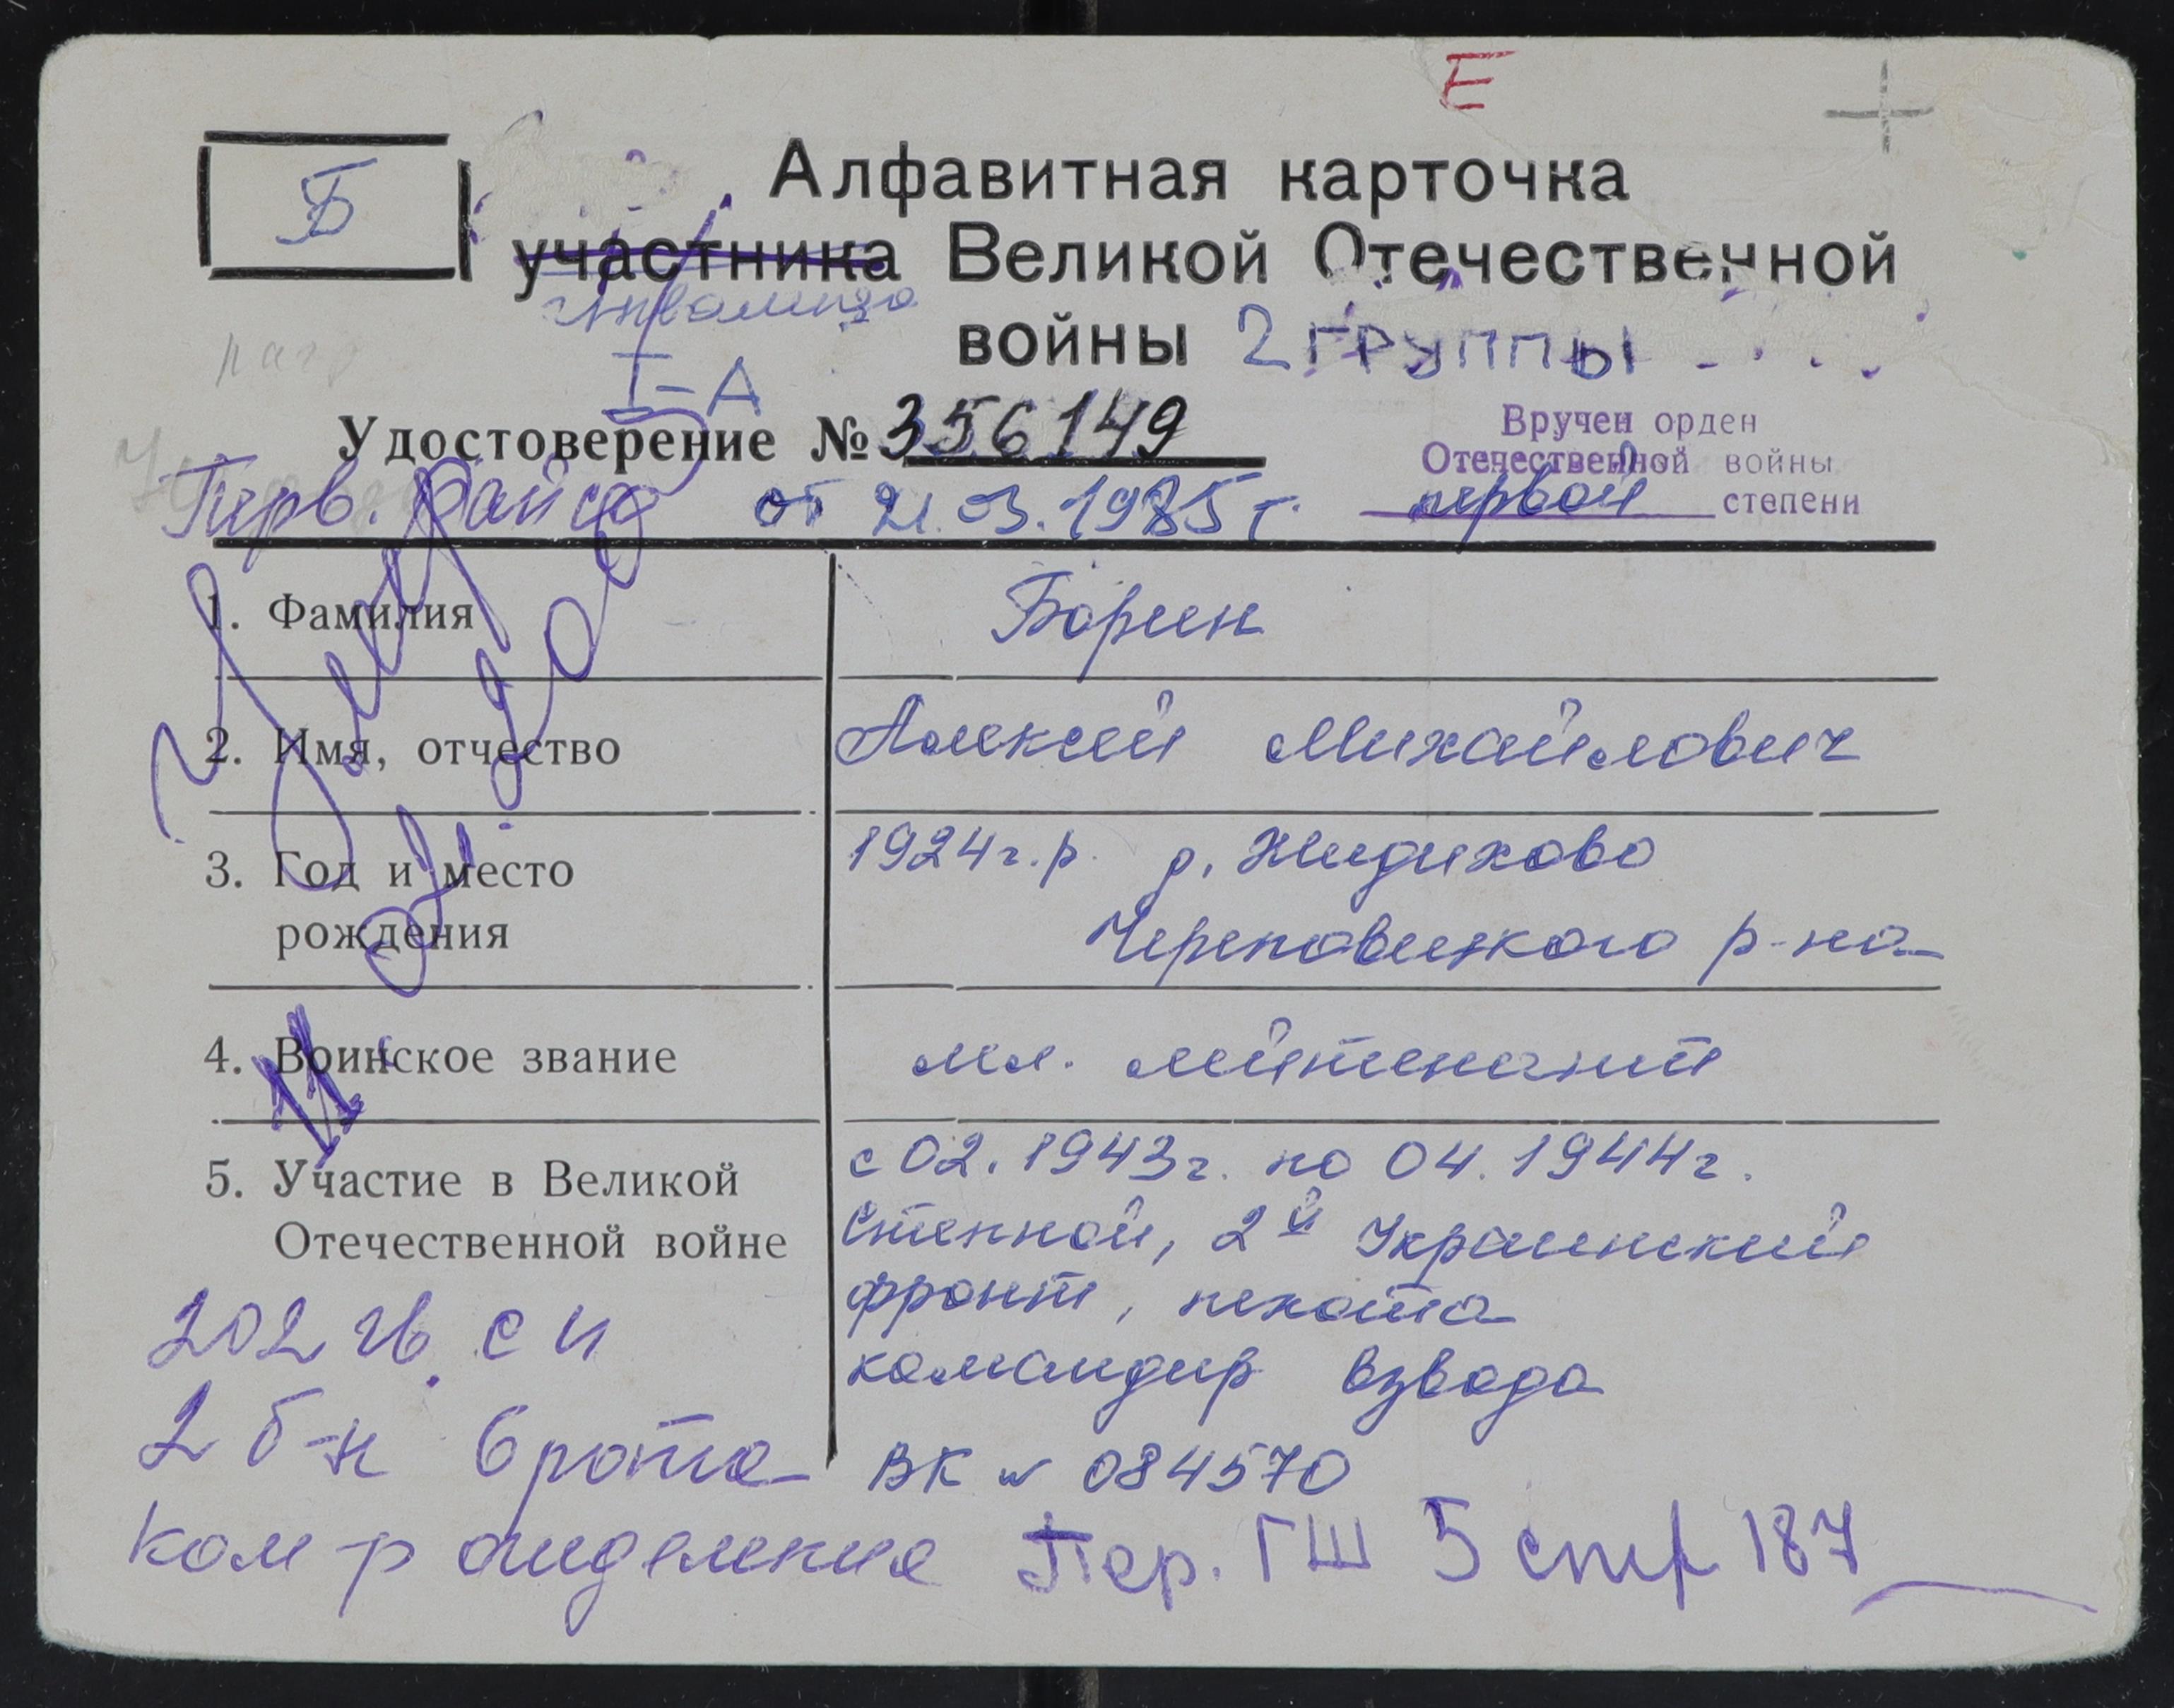 Е
Б
Алфавитная карточка
участника Великой Отечественной
инвалида
войны 2 группы
I-А
Удостоверение № 356149
Вручен орден
Отечественной войны
первой степени
Перв. райсо от 21.03.1985 г.
1. Фамилия Борин
2. Имя, отчество Алексей Михайлович
3. Год и место 1924 г.р. д. Жидихово
рождения Череповецкого р-на
4. Воинское звание мл. лейтенант
5. Участие в Великой с 02.1943г. по 04.1944г.
Отечественной войне Степной, 2й Украинский
фронт, пехота
202 гв. сп
командир взвода
2 б-н 6 рота ВК № 084570
Ком-р отделения Пер. ГШ 5 стр 187